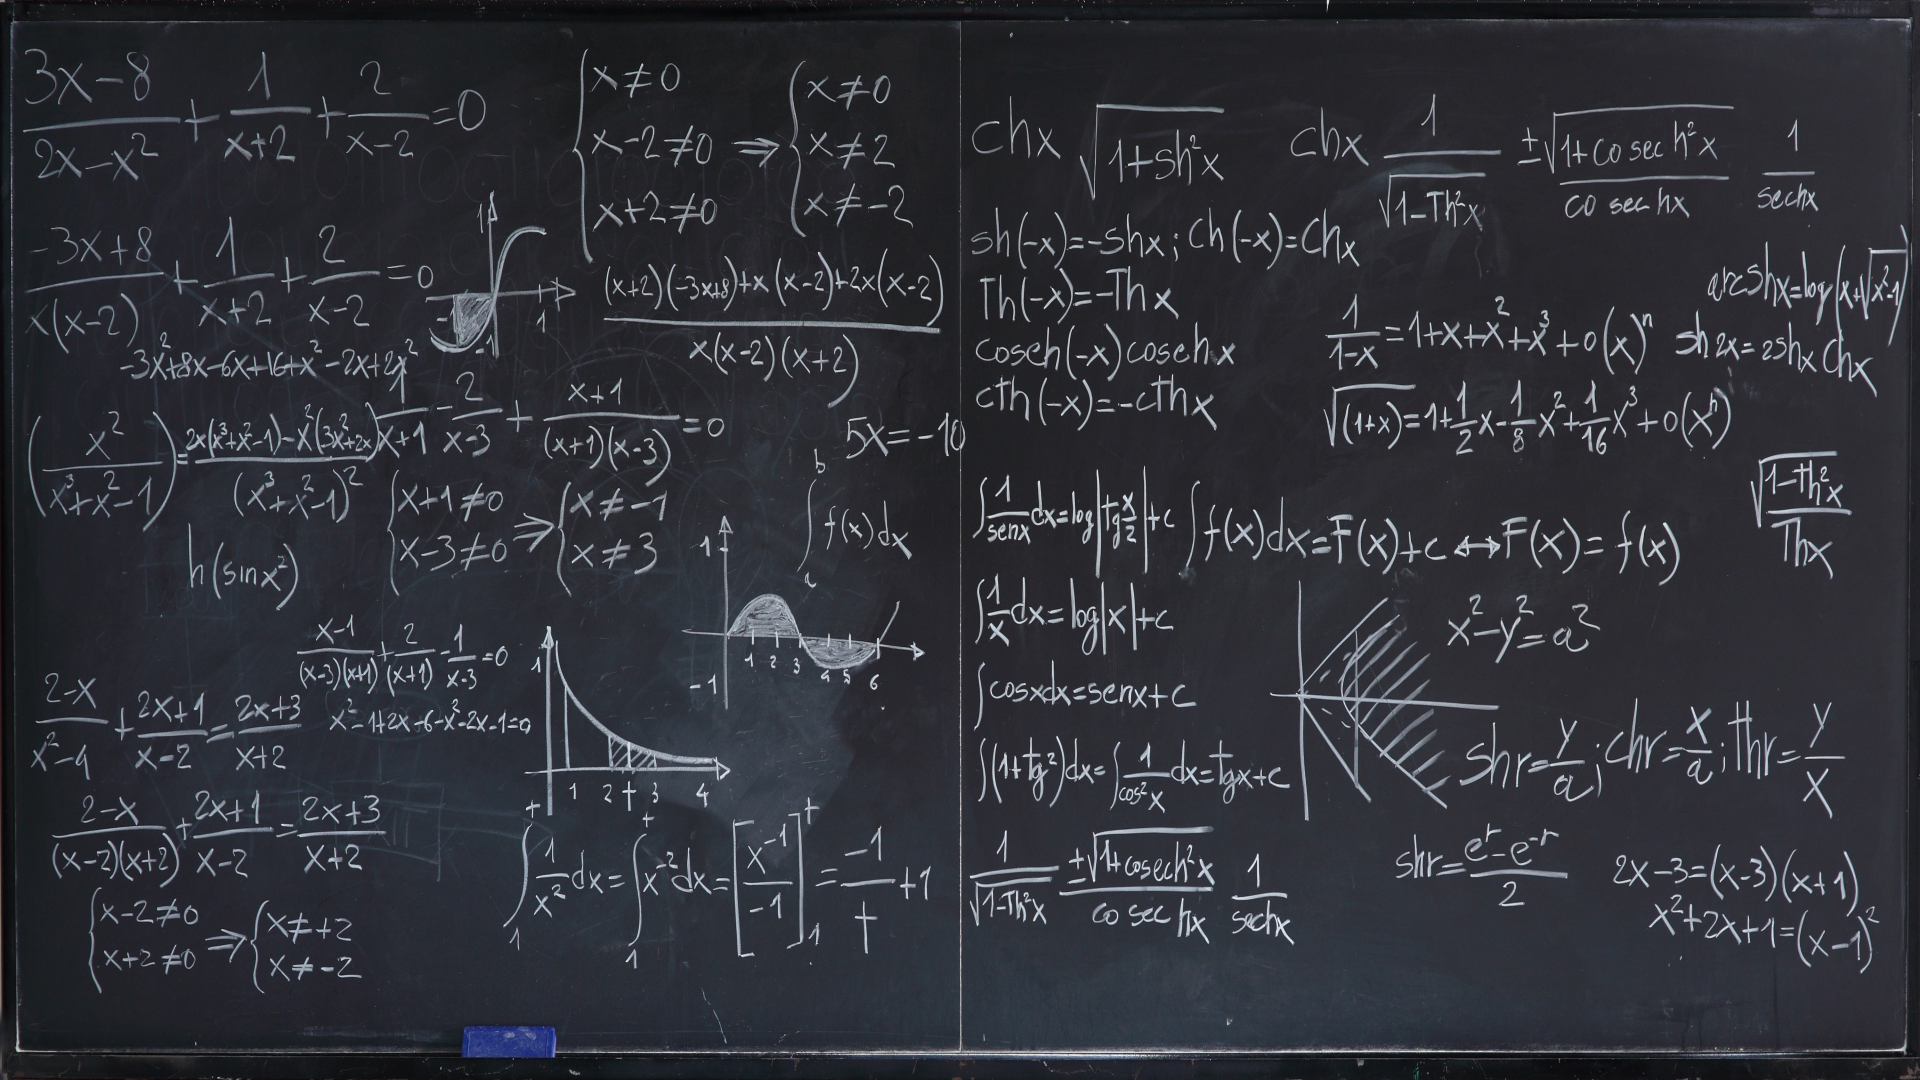 (3x-8)/(2x-x²) + 1/(x+2) + 2/(x-2) = 0
{ x≠0
x-2≠0
x+2≠0
⇒
{ x≠0
x≠2
x≠-2
(-3x+8)/(x(x-2)) + 1/(x+2) + 2/(x-2) = 0
1
-1 1
-1
((x+2)(-3x+8)+x(x-2)+2x(x-2))/(x(x-2)(x+2))
-3x²+8x-6x+16+x²-2x+2x²
(x²/(x³+x²-1)) = (2x(x³+x²-1)-x²(3x²+2x))/(x³+x²-1)²
1/(x+1) - 2/(x-3) + (x+1)/((x+1)(x-3)) = 0
5x=-10
{ x+1≠0
x-3≠0
⇒
{ x≠-1
x≠3
∫ₐᵇ f(x)dx
h(sinx²)
1
-1
1 2 3 4 5 6
(x-1)/((x-3)(x+1)) + 2/(x+1) - 1/(x-3) = 0
x²-1+2x-6-x²-2x-1=0
(2-x)/(x²-4) + (2x+1)/(x-2) = (2x+3)/(x+2)
1
1 2 t 3 4
(2-x)/((x-2)(x+2)) + (2x+1)/(x-2) = (2x+3)/(x+2)
{ x-2≠0
x+2≠0
⇒
{ x≠+2
x≠-2
∫₁ᵗ 1/x² dx = ∫₁ᵗ x⁻²dx = [x⁻¹/-1]₁ᵗ = -1/t + 1
chx √(1+sh²x)
chx 1/√(1-Th²x) ±√(1+cosech²x)/cosechx 1/sechx
sh(-x)=-shx; ch(-x)=chx
Th(-x)=-Thx
cosech(-x)cosechx
cth(-x)=-cthx
arcshx=log(x+√(x²-1))
1/(1-x) = 1+x+x²+x³+o(x)ⁿ
sh2x=2shx chx
√(1+x) = 1+1/2x-1/8x²+1/16x³+o(xⁿ)
√(1-Th²x)/Thx
∫1/senx dx=log|tg x/2|+c
∫f(x)dx=F(x)+c↔F(x)=f(x)
∫1/x dx=log|x|+c
∫cosxdx=senx+c
∫(1+tg²)dx=∫1/cos²x dx=tgx+c
x²-y²=a²
shr=y/a; chr=x/a; thr=y/x
1/√(1-Th²x) ±√(1+cosech²x)/cosechx 1/sechx
shr=(eʳ-e⁻ʳ)/2
2x-3=(x-3)(x+1)
x²+2x+1=(x-1)²